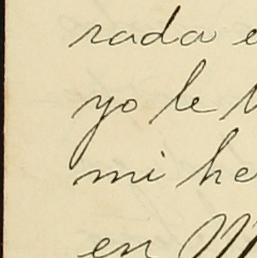 rada
yo le
mi he
en